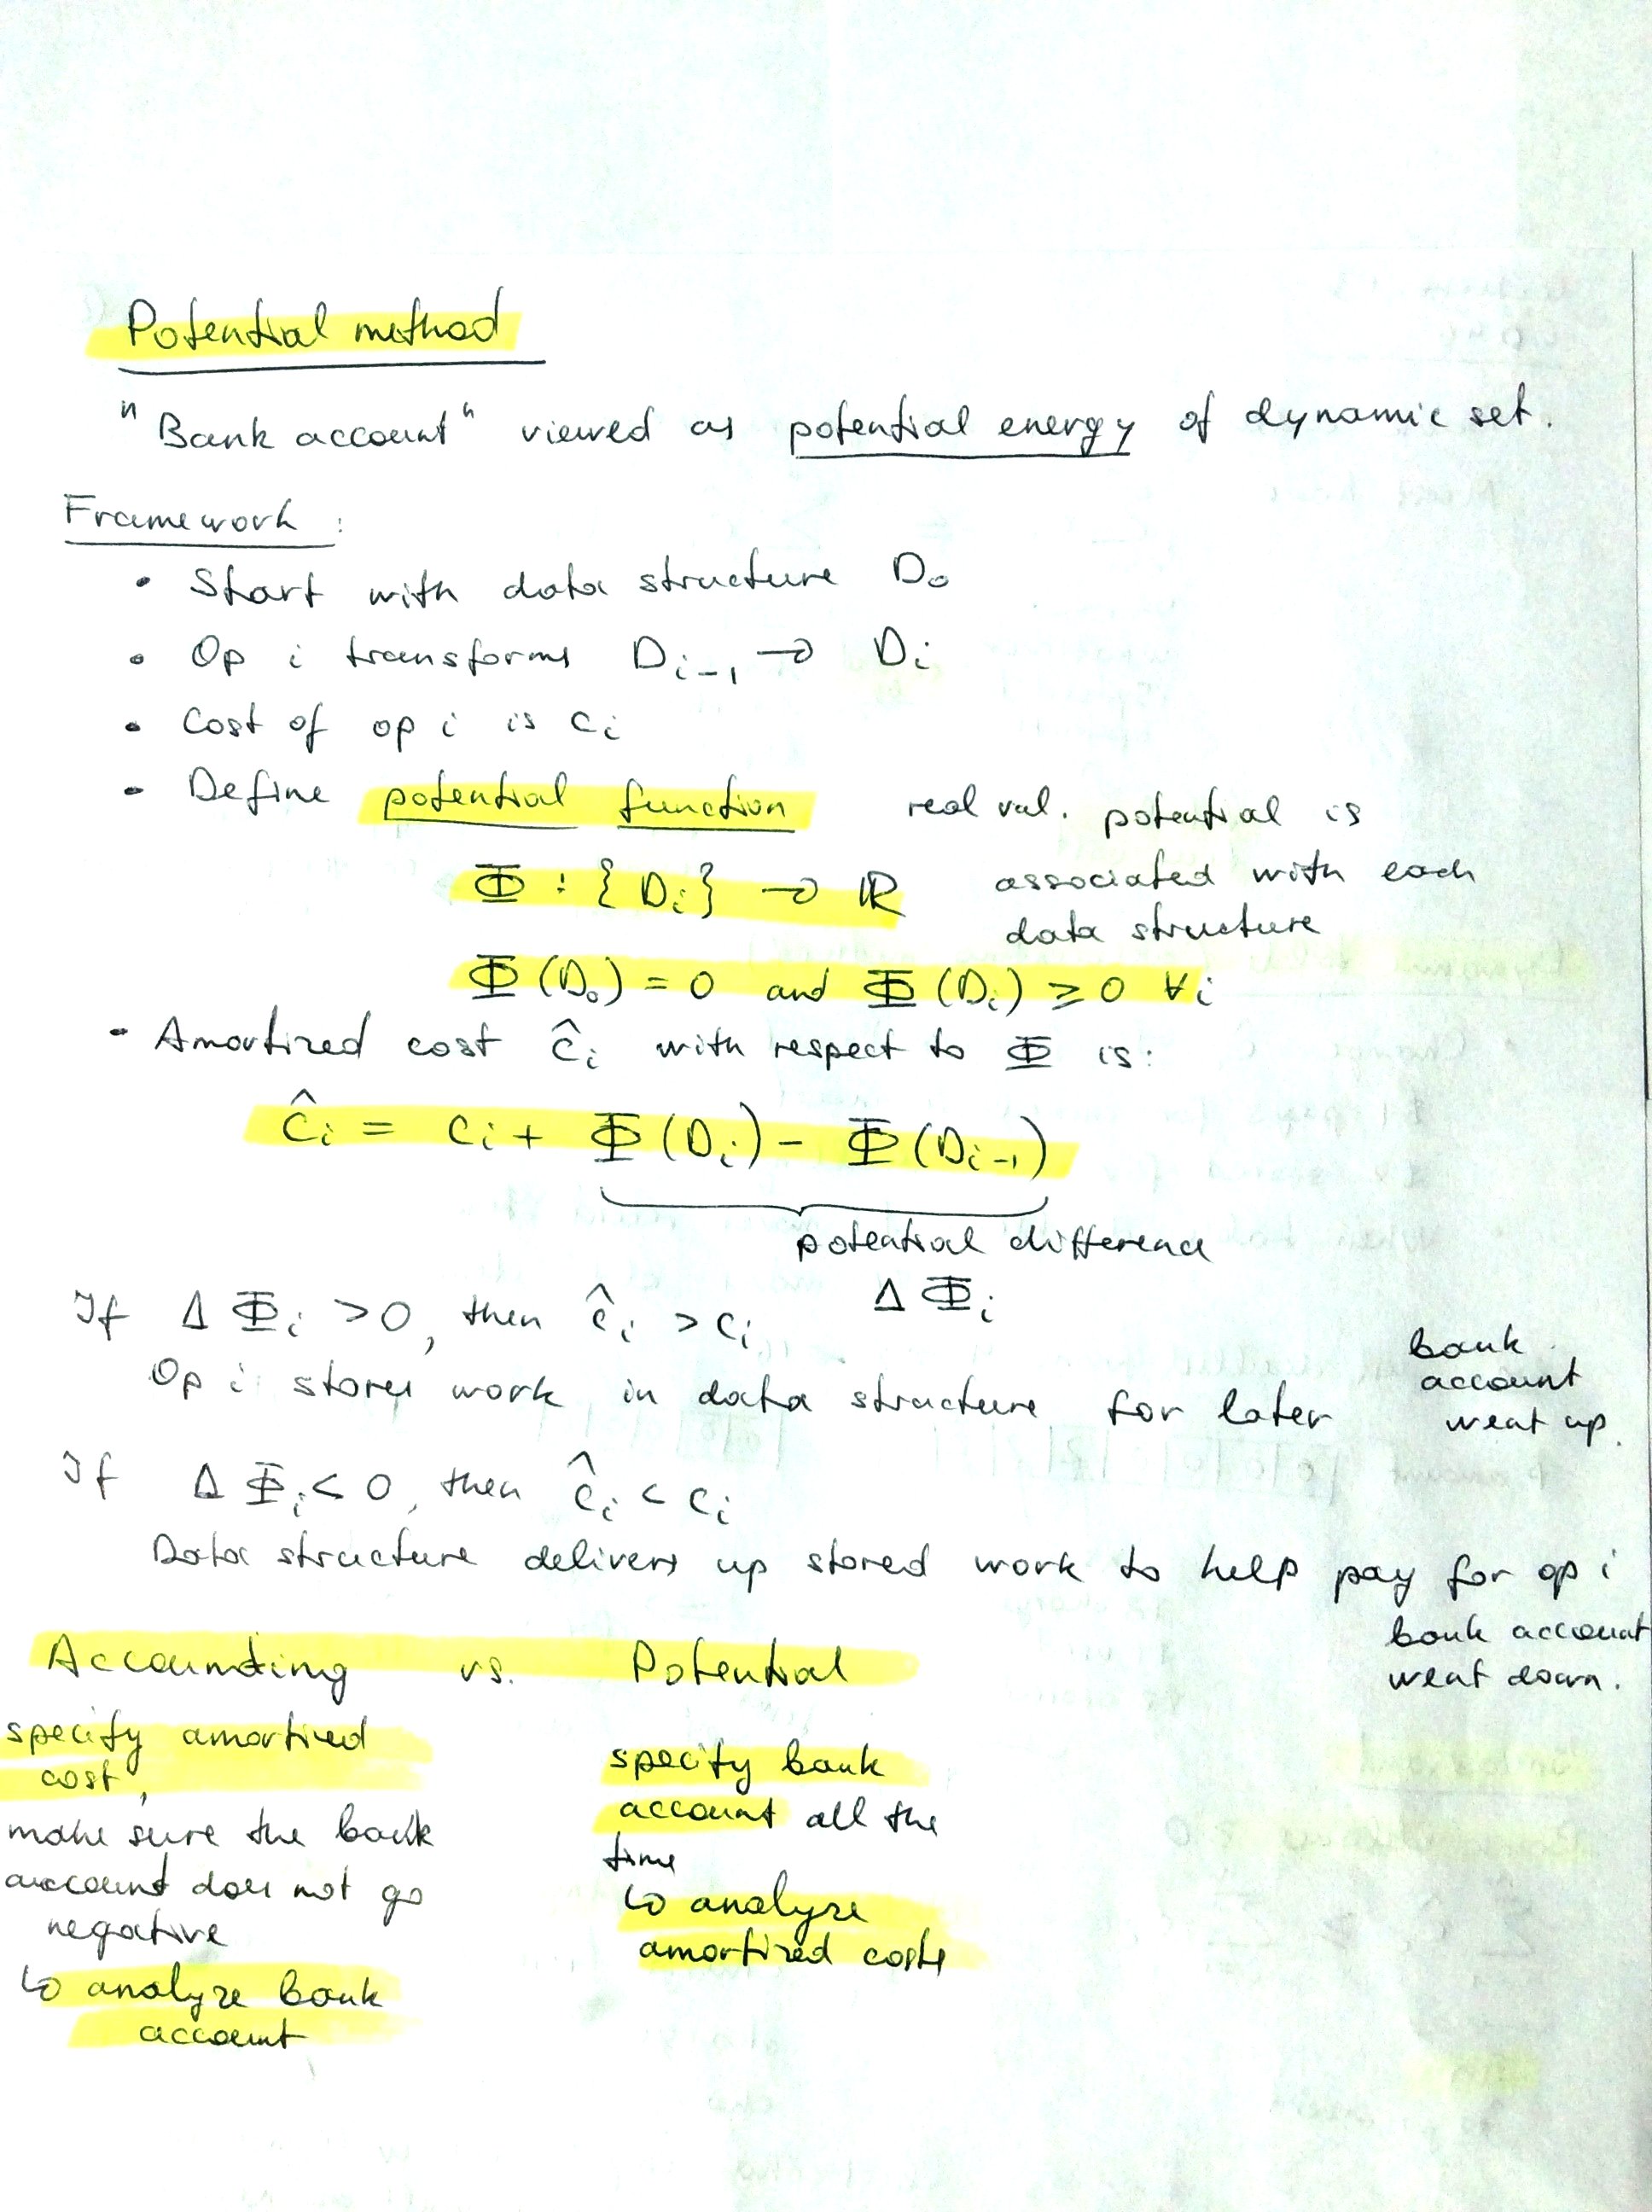 Potential method
"Bank account" viewed as potential energy of dynamic set.
Framework:
• Start with data structure D₀
• Op i transforms Dᵢ₋₁ → Dᵢ
• Cost of op i is cᵢ
• Define potential function
real val. potential is
associated with each
data structure
Φ : {Dᵢ} → ℝ
Φ(D₀) = 0 and Φ(Dᵢ) ≥ 0 ∀i
• Amortized cost ĉᵢ with respect to Φ is:
ĉᵢ = cᵢ + Φ(Dᵢ) - Φ(Dᵢ₋₁)
potential difference
ΔΦᵢ
If ΔΦᵢ > 0, then ĉᵢ > cᵢ
Op i stores work in data structure for later
bank
account
went up.
If ΔΦᵢ < 0, then ĉᵢ < cᵢ
Data structure delivers up stored work to help pay for op i
bank account
went down.
Accounting vs. Potential
specify amortized
cost,
make sure the bank
account does not go
negative
↳ analyze bank
account
specify bank
account all the
time
↳ analyze
amortized costs